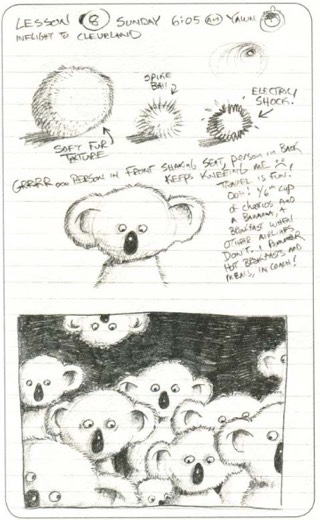 LESSON 8 SUNDAY 6:05 AM YAWN
INFLIGHT TO CLEVELAND
SPIKE
BALL
ELECTRIC
SHOCK!
SOFT FUR
TEXTURE
GRRRR... PERSON IN FRONT SHAKING SEAT, PERSON IN BACK
KEEPS KNEEING ME
TRAVEL IS FUN!
OOH! 1/6TH CUP
OF CHEERIOS AND
A BANANA, 4
BREAKFAST WHEN
OTHER AIRLINES
DON'T. I REMEMBER
HOT BREAKFASTS AND
MEALS, IN COACH!